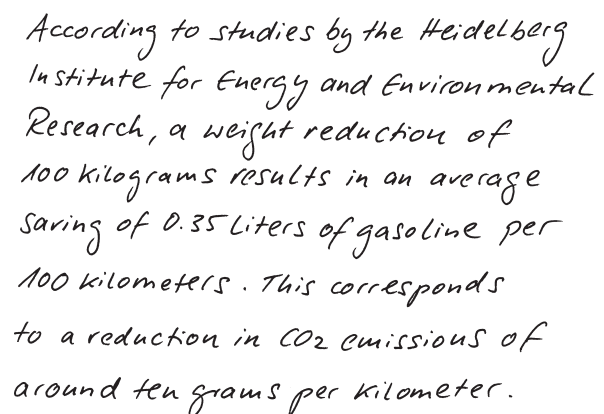 According to studies by the Heidelberg
Institute for Energy and Environmental
Research, a weight reduction of
100 kilograms results in an average
saving of 0.35 liters of gasoline per
100 kilometers. This corresponds
to a reduction in CO2 emissions of
around ten grams per kilometer.